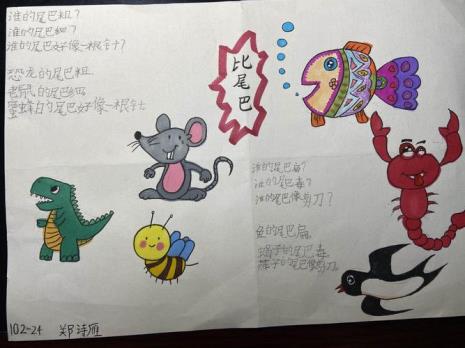 谁的尾巴粗?
谁的尾巴细?
谁的尾巴好像一根针?
恐龙的尾巴粗
老鼠的尾巴细
蜜蜂的尾巴好像一根针
比尾巴
谁的尾巴扁?
谁的尾巴毒?
谁的尾巴像剪刀?
鱼的尾巴扁。
蝎子的尾巴毒
燕子的尾巴像剪刀。
102-24 郑诗雁